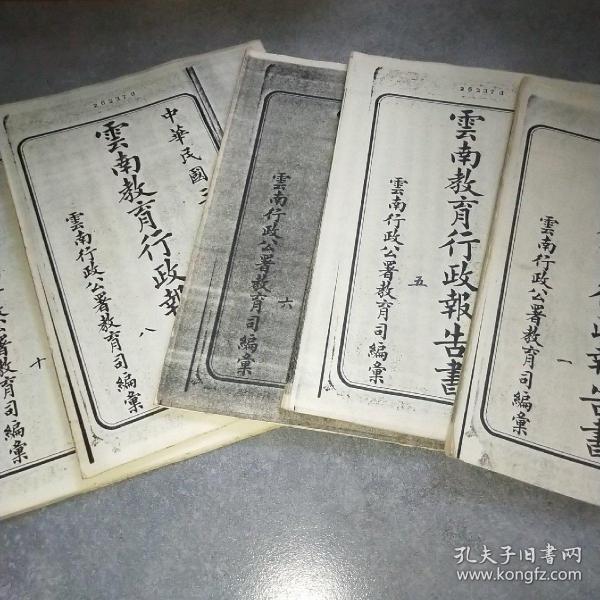 教育司編彙
十
262370
中華民國三
雲南教育行政報
八
雲南行政公署教育司編彙
六
雲南行政公署教育司編彙
262370
雲南教育行政報告書
五
雲南行政公署教育司編彙
政報告書
一
雲南行政公署教育司編彙
孔夫子旧书网
www.kongfz.com